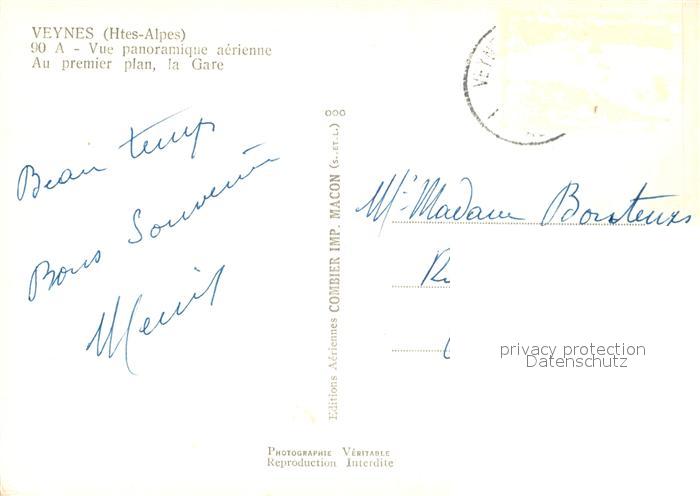 VEYNES (Htes-Alpes)
90 A - Vue panoramique aérienne
Au premier plan, la Gare
VEYN
Beau temps
Bons Souvenirs
Editions Aériennes COMBIER IMP. MACON (S.-ET-L.) ooo
Mr Madame
privacy protection
Datenschutz
PHOTOGRAPHIE VÉRITABLE
Reproduction Interdite